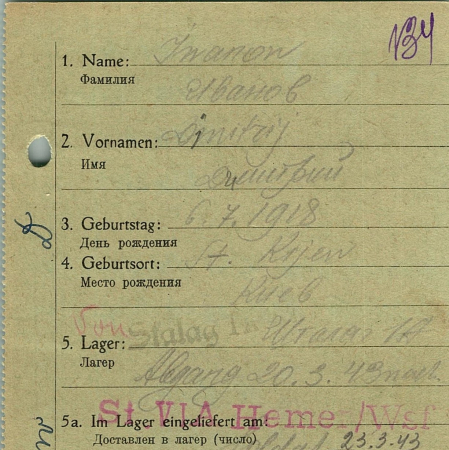 1. Name: Iwanow
Фамилия Иванов
2. Vornamen: Dmitrij
Имя Дмитрий
3. Geburtstag: 6.7.1918
День рождения
4. Geburtsort: St. Kijew
Место рождения Киев
Von Stalag
5. Lager: Шталаг IA
Лагерь Abgang 20.3.43 nach
St. VI A Hemer/Wsf
5a. Im Lager eingeliefert am:
Доставлен в лагерь (число) 23.3.43